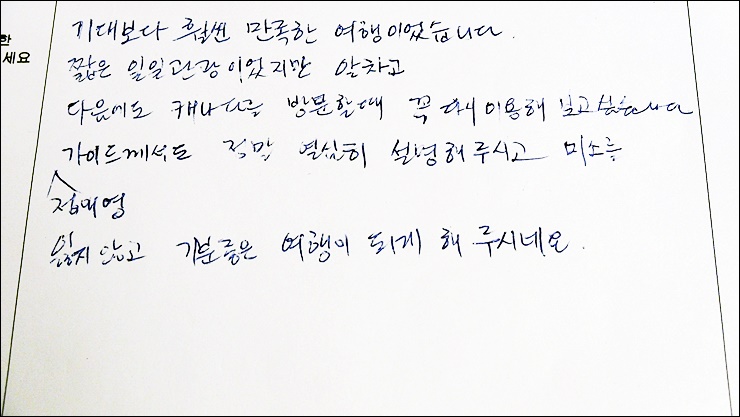 한
세요
기대보다 훨씬 만족한 여행이었습니다.
짧은 일일관광이었지만 알차고
다음에도 캐나다를 방문할때 꼭 다시 이용해 보고싶습니다
가이드께서도 정말 열심히 설명해주시고 미소를
잃지 않고 기분좋은 여행이 되게 해 주시네요.